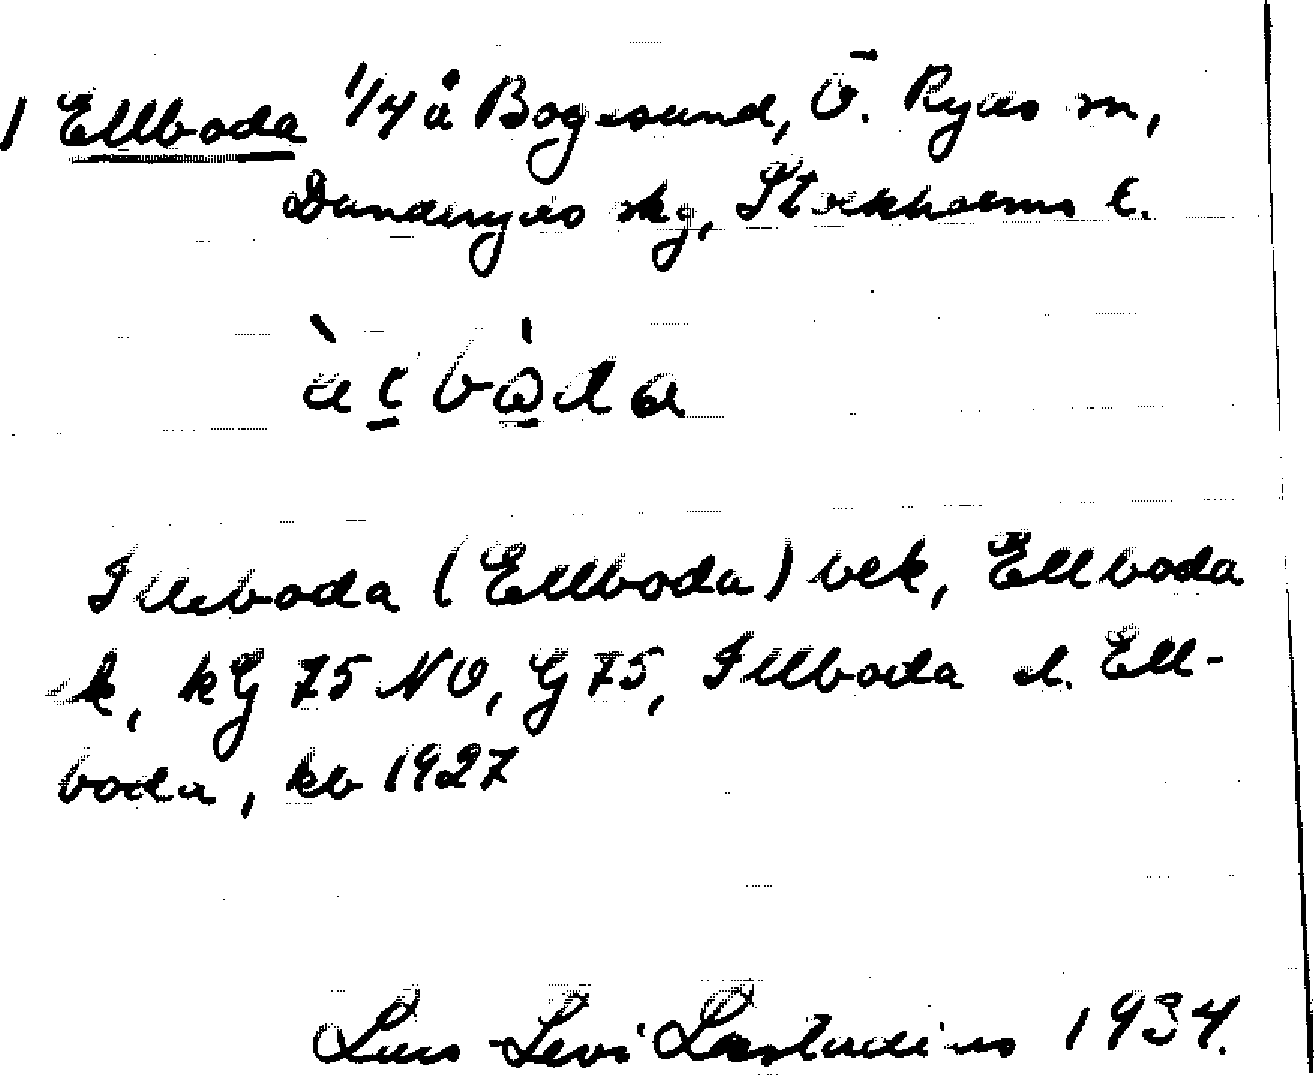 1 Ellboda 1/4 å Bogesund, Ö. Ryds sn,
Danderyds skg, Stockholms l.
Illeboda (Ellboda) bek, Ellboda
k, kG 75 NO, G 75, Illboda el. Ell-
boda, kb 1927
Lars-Levi Læstadius 1934.